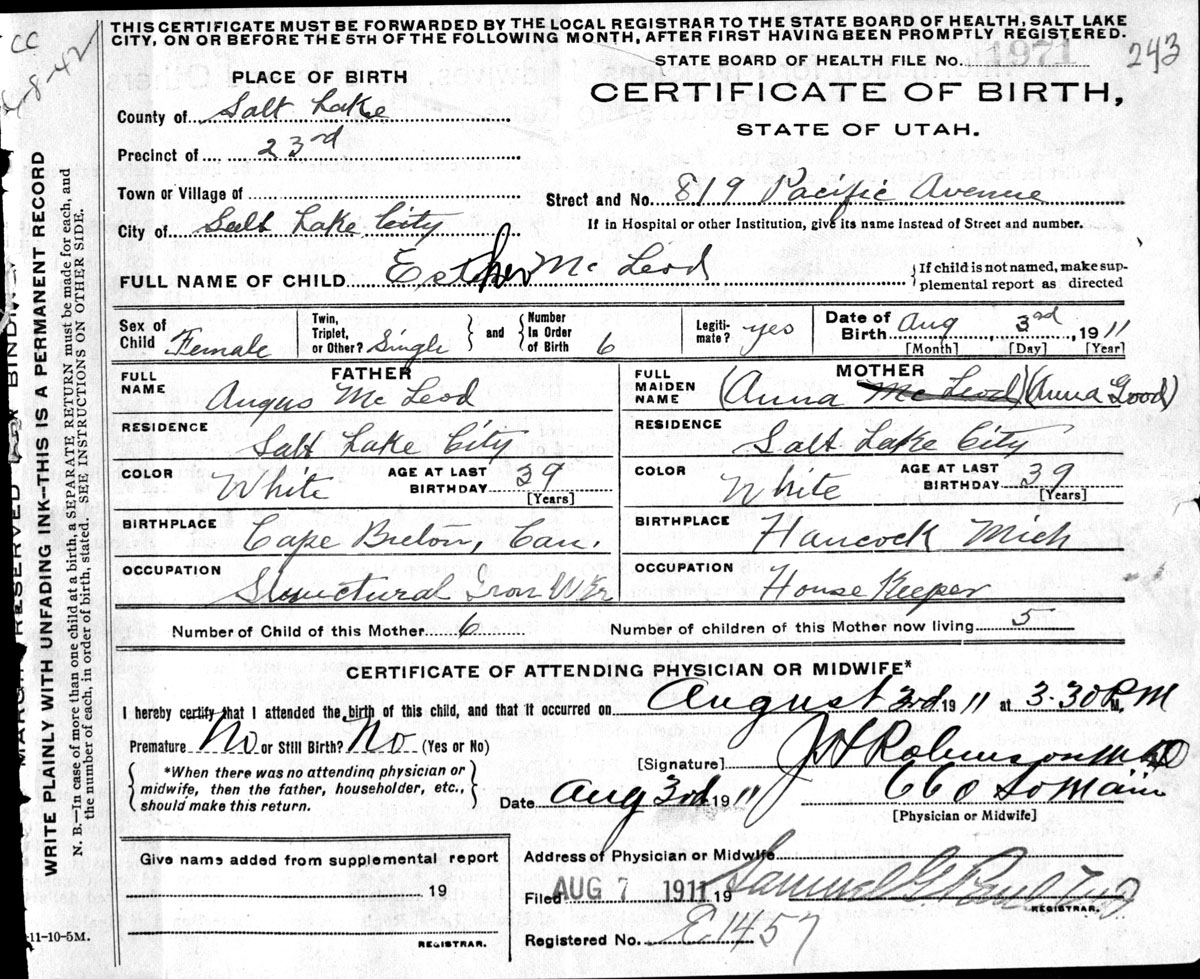 THIS CERTIFICATE MUST BE FORWARDED BY THE LOCAL REGISTRAR TO THE STATE BOARD OF HEALTH, SALT LAKE
CITY, ON OR BEFORE THE 5TH OF THE FOLLOWING MONTH, AFTER FIRST HAVING BEEN PROMPTLY REGISTERED.
CC
8-42
243
STATE BOARD OF HEALTH FILE No. 1971
PLACE OF BIRTH
CERTIFICATE OF BIRTH,
STATE OF UTAH.
County of Salt Lake
Precinct of 23rd
Town or Village of
Street and No. 819 Pacific Avenue
City of Salt Lake City
If in Hospital or other Institution, give its name instead of Street and number.
FULL NAME OF CHILD Esther Mc Leod
If child is not named, make sup-
plemental report as directed
Sex of
Child Female
Twin,
Triplet,
or Other? Single
and
Number
In Order
of Birth 6
Legiti-
mate? yes
Date of
Birth Aug 3rd, 1911
[Month] [Day] [Year]
FATHER
FULL
NAME Angus Mc Leod
RESIDENCE Salt Lake City
COLOR White
AGE AT LAST
BIRTHDAY 39
[Years]
BIRTHPLACE Cape Breton, Can.
OCCUPATION Structural Iron Wkr
MOTHER
FULL
MAIDEN
NAME (Anna Mc Leod) (Anna Good)
RESIDENCE Salt Lake City
COLOR White
AGE AT LAST
BIRTHDAY 39
[Years]
BIRTHPLACE Hancock Mich
OCCUPATION House Keeper
Number of Child of this Mother 6
Number of children of this Mother now living 5
CERTIFICATE OF ATTENDING PHYSICIAN OR MIDWIFE*
I hereby certify that I attended the birth of this child, and that it occurred on August 3rd 1911 at 3-30 P.M
Premature No or Still Birth? No (Yes or No)
*When there was no attending physician or
midwife, then the father, householder, etc.,
should make this return.
[Signature] J H Robinson M D
Date Aug 3rd 1911
660 So Main
[Physician or Midwife]
Give name added from supplemental report
19
REGISTRAR.
Address of Physician or Midwife
Filed AUG 7 1911 19 Samuel G Paul
REGISTRAR.
Registered No. E1457
11-10-5M.
MARGIN RESERVED FOR BINDING
WRITE PLAINLY WITH UNFADING INK-THIS IS A PERMANENT RECORD
N. B.—In case of more than one child at a birth, a SEPARATE RETURN must be made for each, and
the number of each, in order of birth, stated. SEE INSTRUCTIONS ON OTHER SIDE.